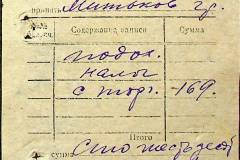 принять Митьков гр.
№№ Содержание записи Сумма
подох.
налог
с торг. 169.
Итого
сумма Сто шестьдесят